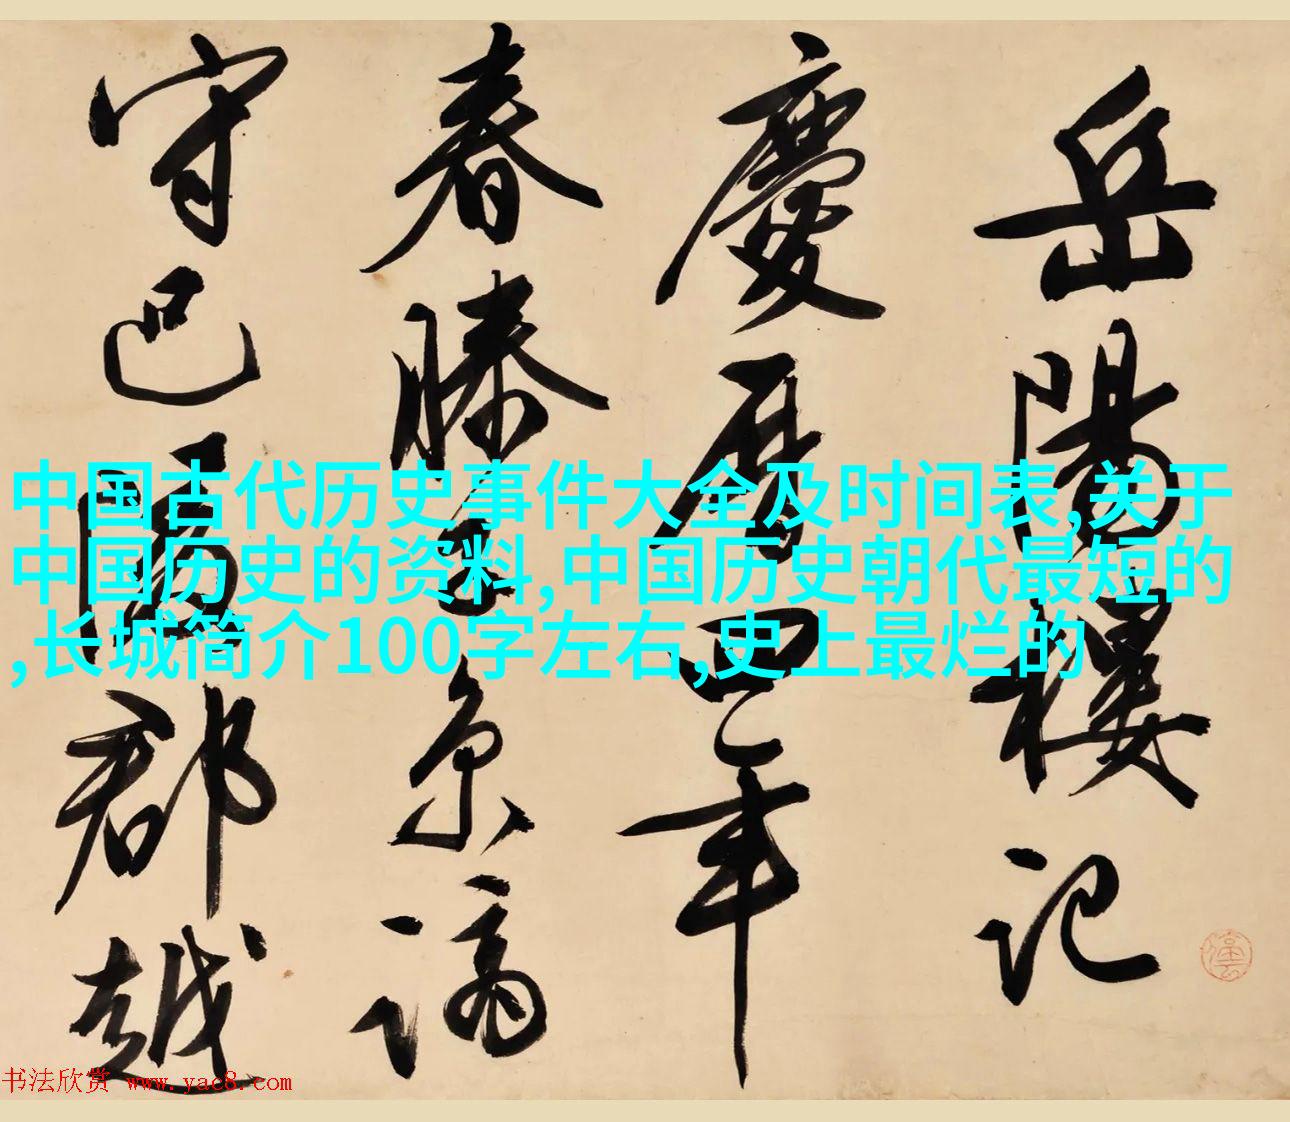 岳陽樓記
慶曆四年
春滕子京謫
守巴陵郡越
中国古代历史事件大全及时间表,关于
中国历史的资料,中国历史朝代最短的
,长城简介100字左右,史上最烂的
书法欣赏 www.yac8.com